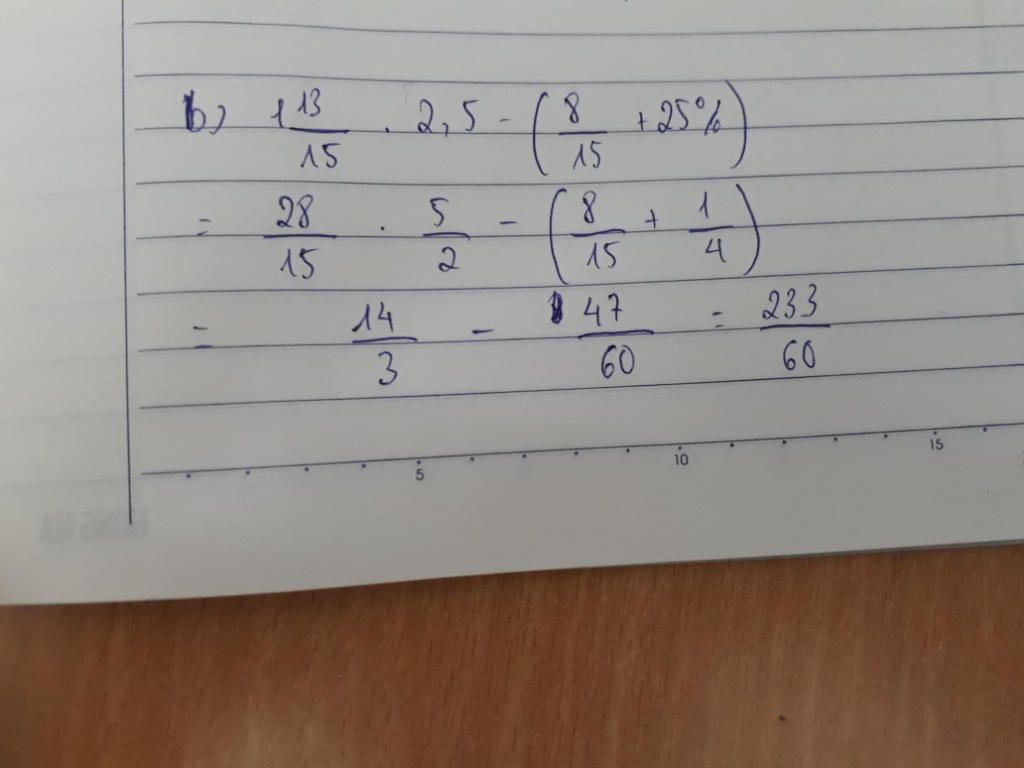 b) 1 13/15 . 2,5 - (8/15 + 25%)
= 28/15 . 5/2 - (8/15 + 1/4)
= 14/3 - 47/60 = 233/60
5 10 15